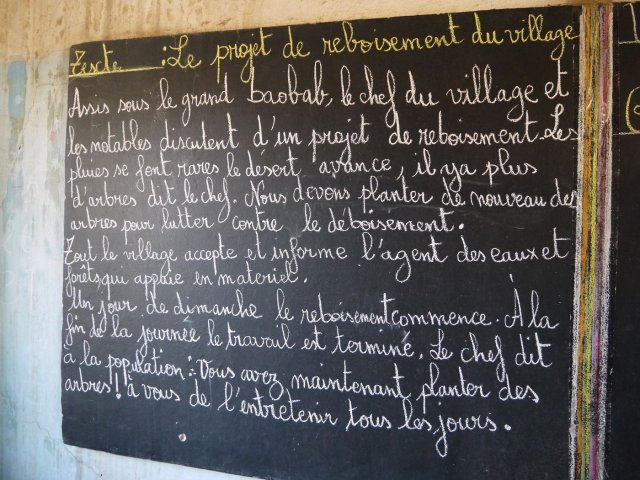 Texte : Le projet de reboisement du village
Assis sous le grand baobab, le chef du village et
les notables discutent d'un projet de reboisement. Les
pluies se font rares le désert avance, il ya plus
d'arbres dit le chef. Nous devons planter de nouveau des
arbres pour lutter contre le déboisement.
Tout le village accepte et informe l'agent des eaux et
forêts qui appuie en materiel.
Un jour de dimanche le reboisement commence. À la
fin de la journée le travail est terminé. Le chef dit
a la population : Vous avez maintenant planter des
arbres ! à vous de l'entretenir tous les jours.